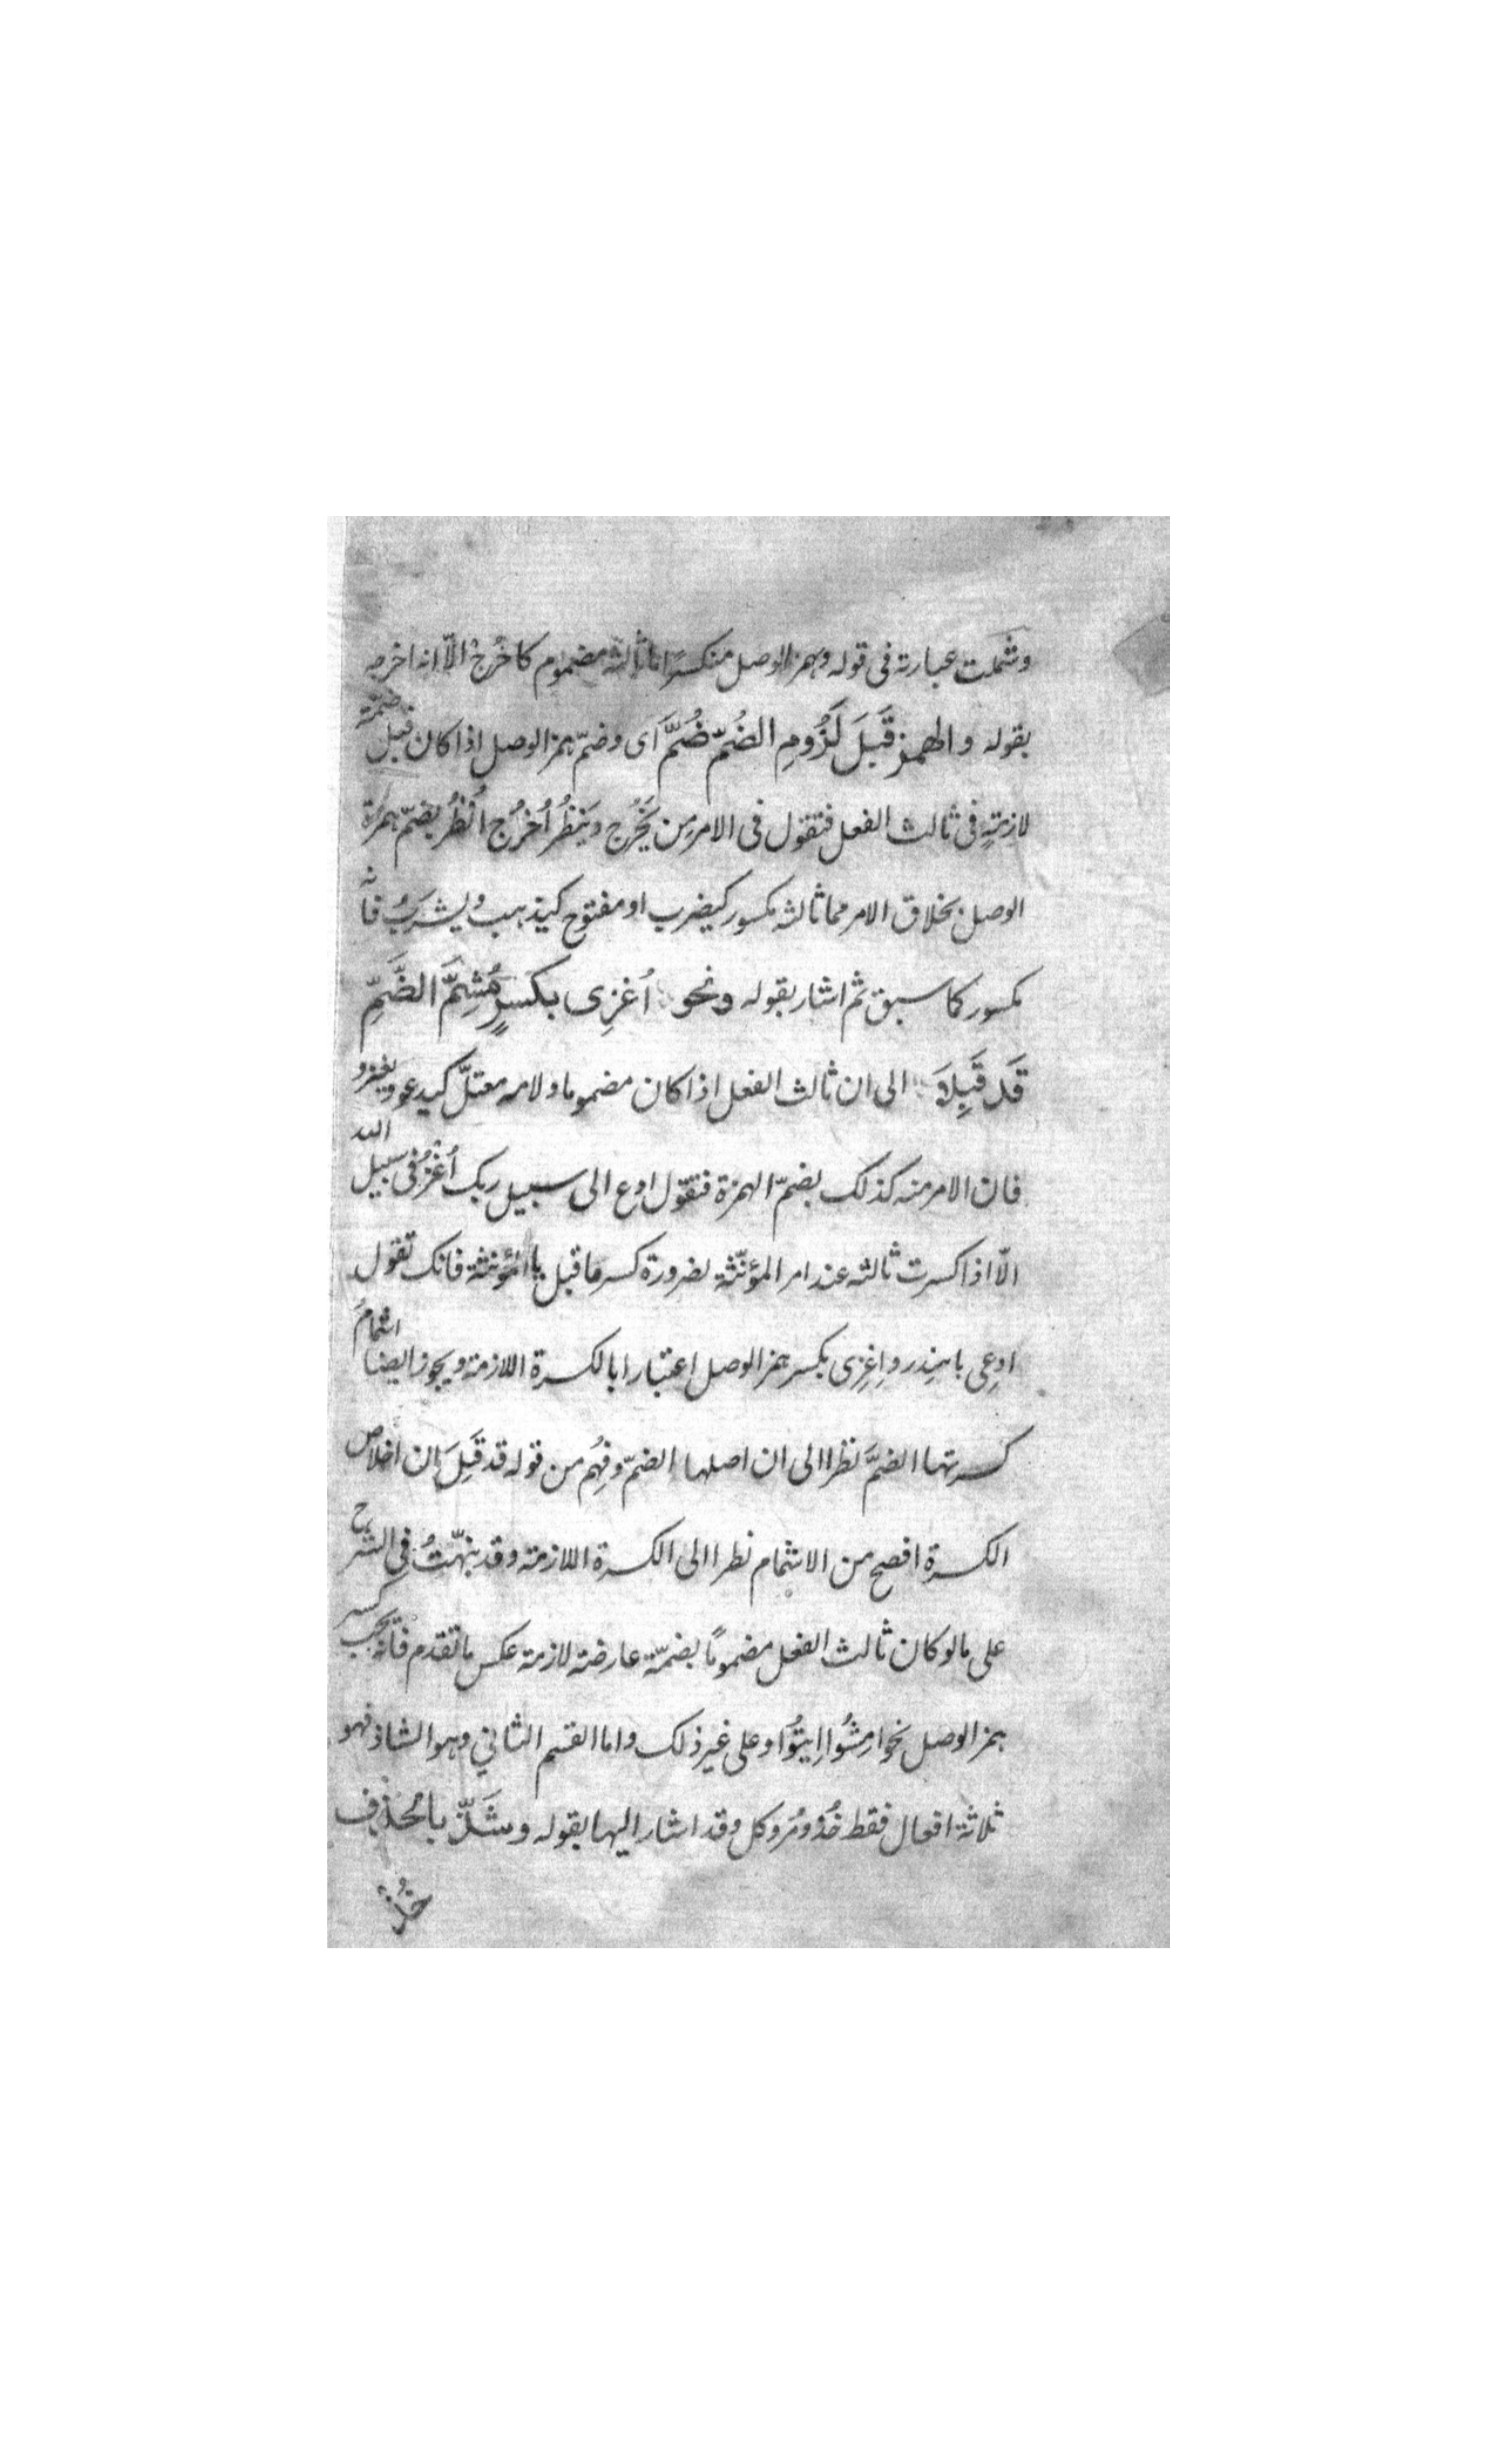 وشَمَلت عبارته فى قوله وهمز الوصل منكسرًا ما ثالثه مضموم كاخْرُجْ الّا انه اخرجه
بقوله والهمز قَبلَ لَزُومِ الضُمّ ضُمَّ اى وضمّ همز الوصل اذا كان قبل ضمّة
لازمةٍ فى ثالث الفعل فتقول فى الامر من يَخْرُج ويَنظُر اُخرُج اُنظُر بضمّ همزة
الوصل بخلاف الامر مما ثالثه مكسور كيضرب او مفتوح كيذهب ويشرَبُ فانه
مكسور كما سبق ثم اشار بقوله ونحو اُغزِى بكسرٍ مُشِمَّ الضَّمِّ
قَد قَبِلَا الى ان ثالث الفعل اذا كان مضموما ولامه معتلّ كيدعو ويغزو
فان الامر منه كذلك بضمّ الهمزة فتقول ادع الى سبيل ربك اُغزُ فى سبيل الله
الّا اذا كسرت ثالثه عند امر المؤنّثة لضرورة كسر ما قبل يا المؤنثة فانك تقول
ادعِى يا هند واِغزِى بكسر همز الوصل اعتبارا بالكسرة اللازمة ويجوز ايضا اشمامُ
كسرتها الضمَّ نظرا الى ان اصلها الضمّ وفُهِم من قوله قد قَبِلَ ان اخلاص
الكسرة افصح من الاشمام نظرا الى الكسرة اللازمة وقد نبّهتُ فى الشرح
على ما لو كان ثالث الفعل مضمومًا بضمّة عارضه لازمة عكس ما تقدم فانّه يجب كسر
همز الوصل نحو امشُوا اِيتُوا وعلى غير ذلك واما القسم الثاني وهو الشاذ فهو
ثلاثة افعال فقط خُذ ومُر وكل وقد اشار اليها بقوله وشَذّ بالحذف
خُذْ